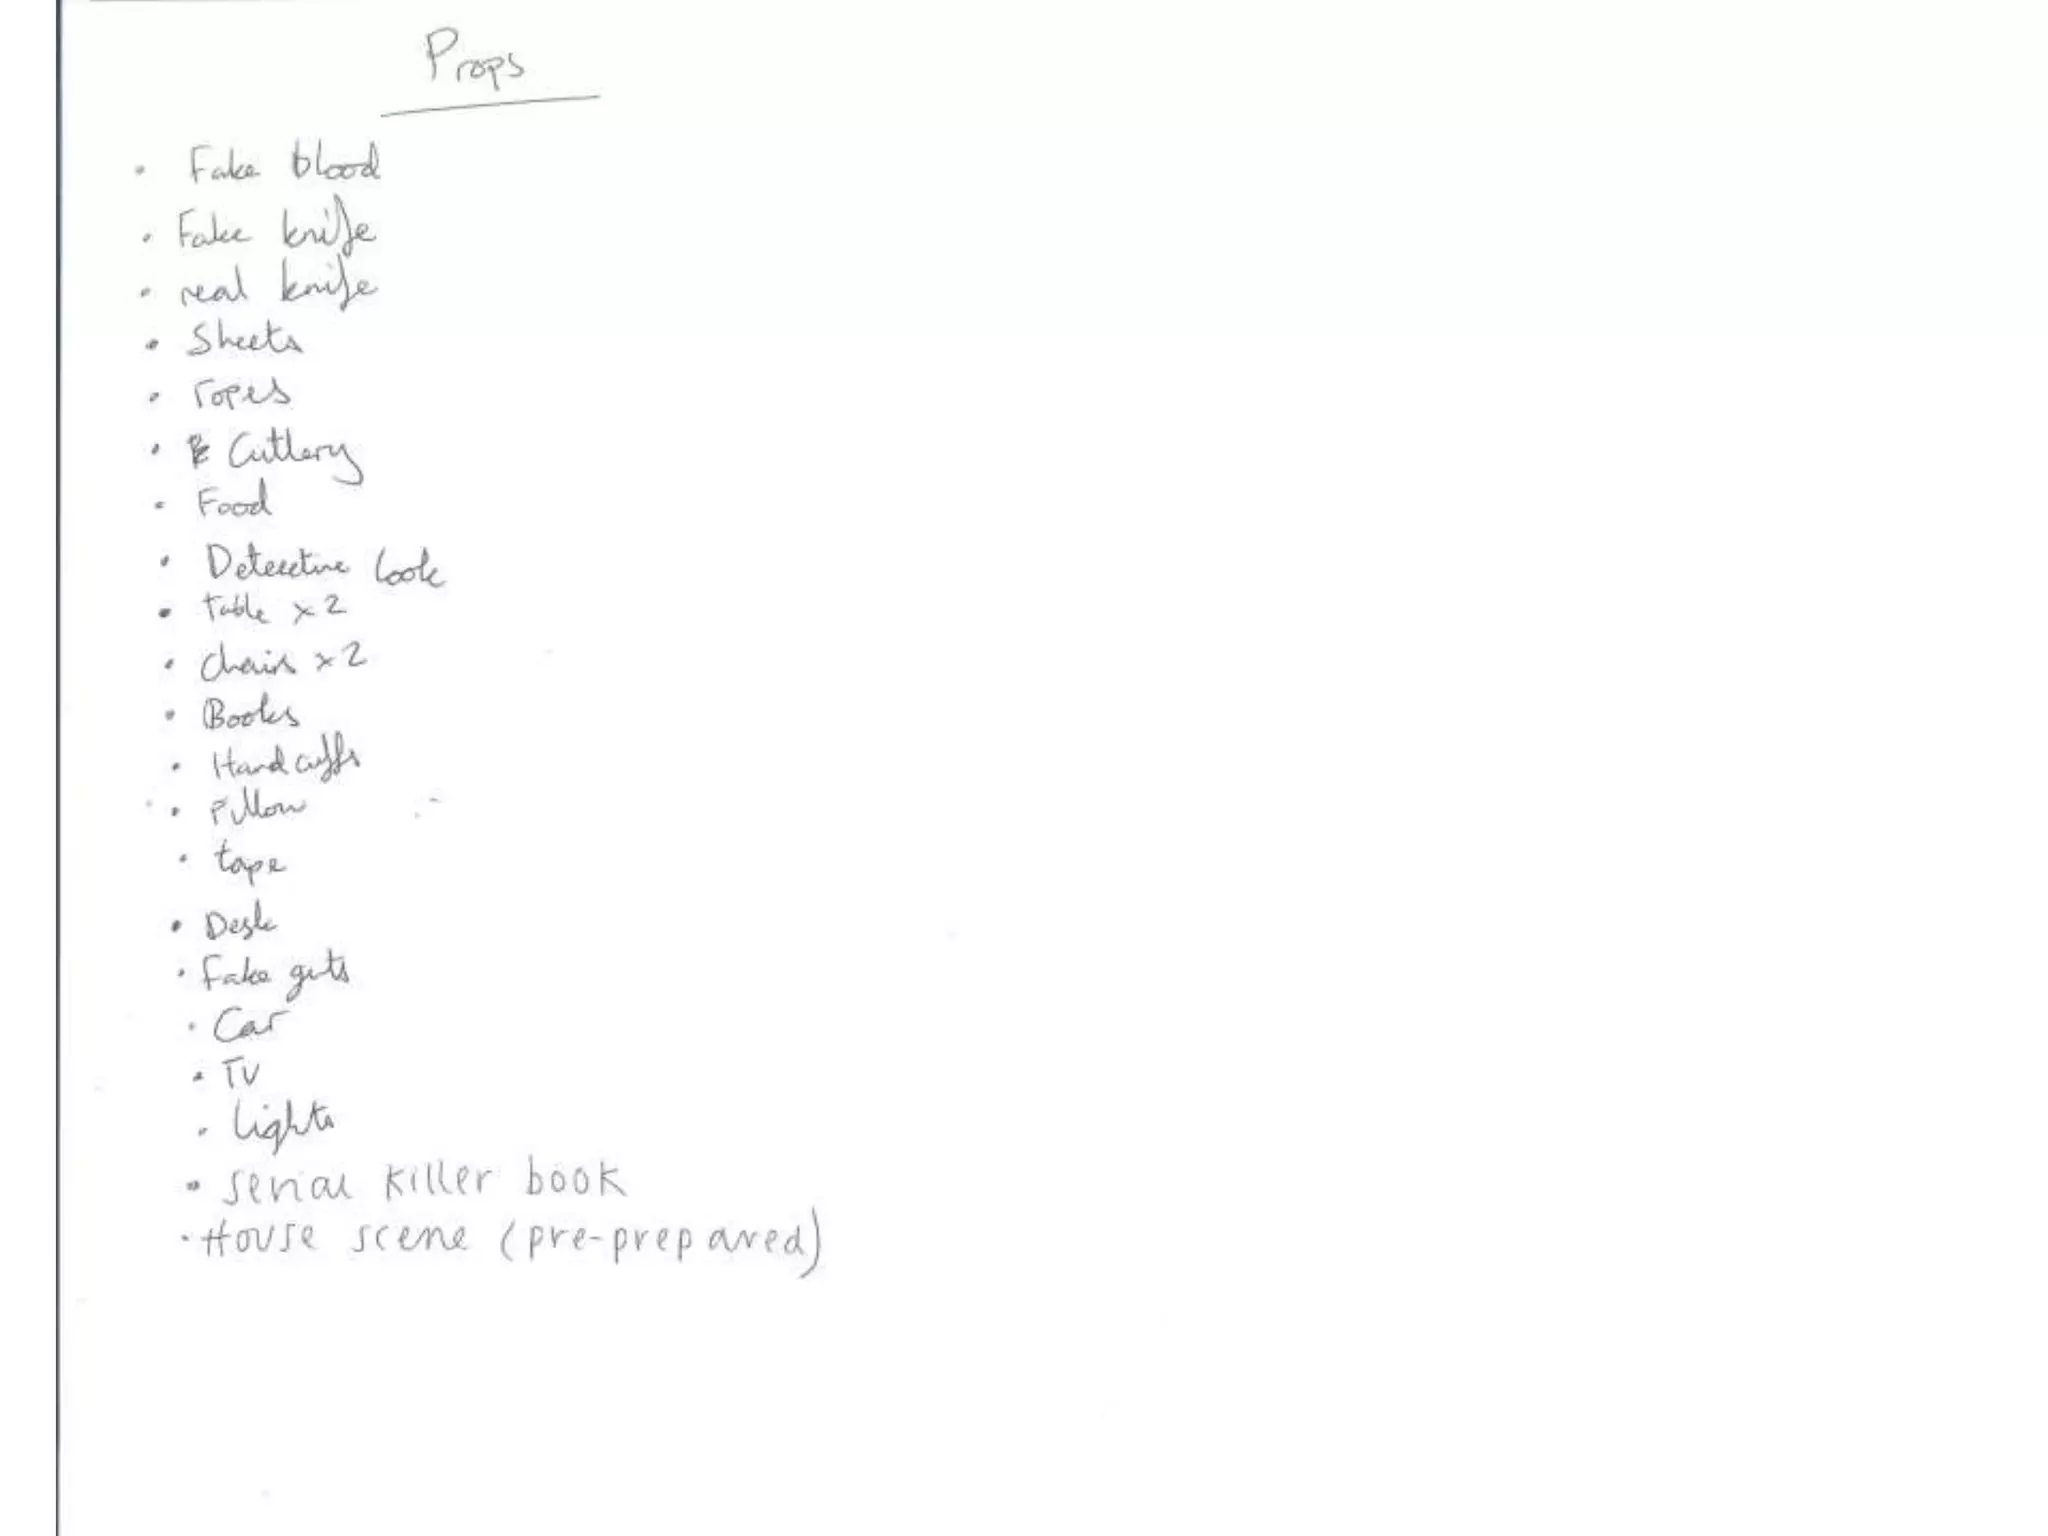 Props
• Fake blood
• Fake knife
• real knife
• Sheets
• ropes
• Cutlery
• Food
• Detective look
• Table x2
• chairs x2
• Books
• Handcuffs
• Pillow
• tape
• Desk
• Fake guts
• Car
• TV
• Lights
• serial killer book
• House scene (pre-prepared)